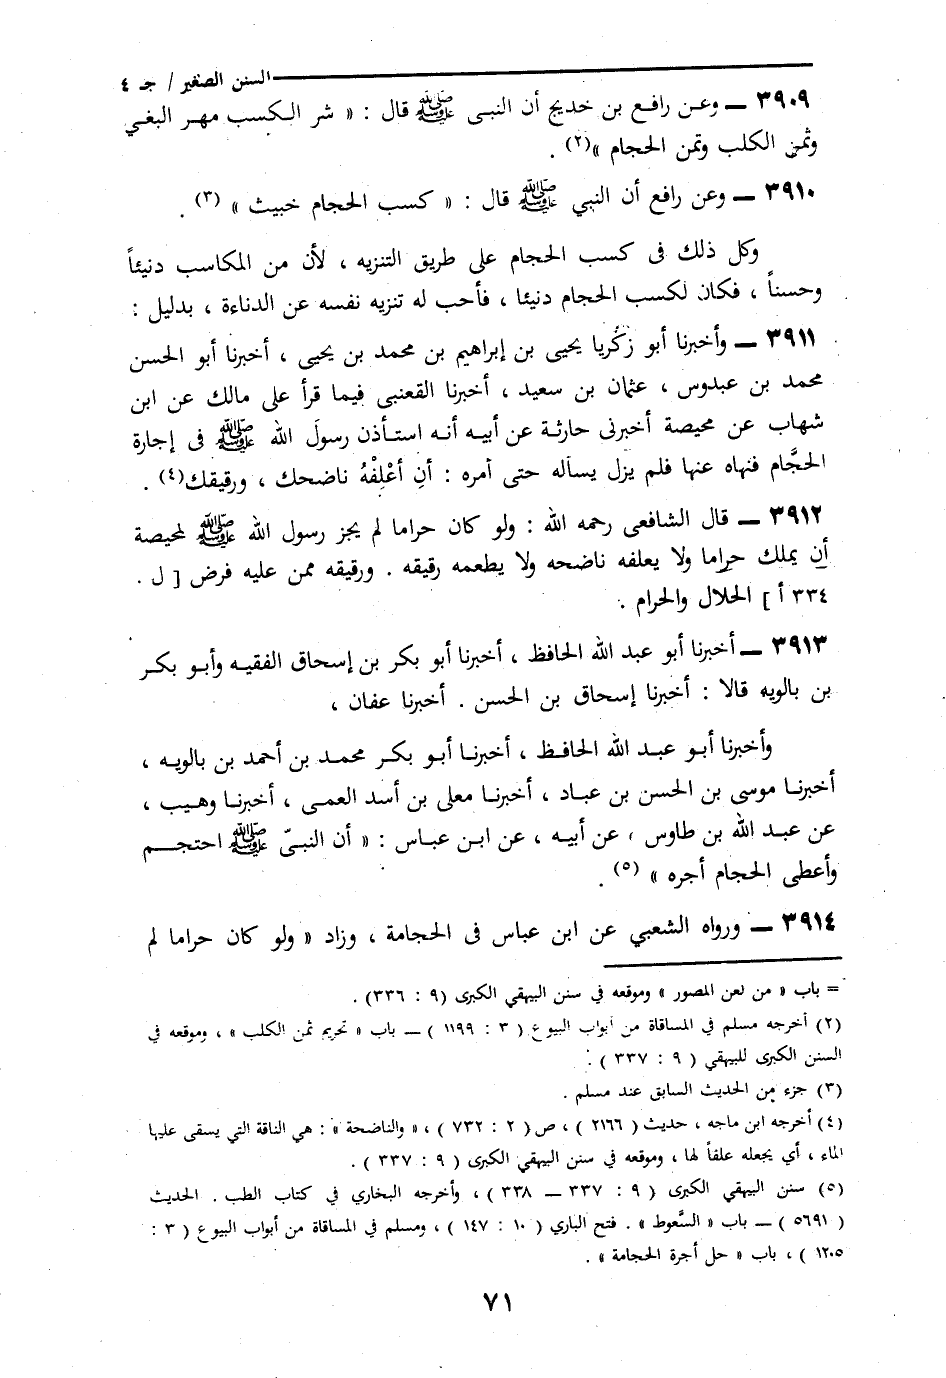 السنن الصغير / جـ ٤
٣٩٠٩ ــ وعن رافع بن خديج أن النبى ﷺ قال : « شر الكسب مهر البغي
وثمن الكلب وثمن الحجام »(٢) .
٣٩١٠ ــ وعن رافع أن النبي ﷺ قال : « كسب الحجام خبيث » (٣) .
وكل ذلك فى كسب الحجام على طريق التنزيه ، لأن من المكاسب دنيئاً
وحسناً ، فكان لكسب الحجام دنيئا ، فأحب له تنزيه نفسه عن الدناءة ، بدليل :
٣٩١١ ــ وأخبرنا أبو زكريا يحيى بن إبراهيم بن محمد بن يحيى ، أخبرنا أبو الحسن
محمد بن عبدوس ، عثمان بن سعيد ، أخبرنا القعنبى فيما قرأ على مالك عن ابن
شهاب عن محيصة أخبرنى حارثة عن أبيه أنه استأذن رسولَ الله ﷺ فى إجارة
الحجَّام فنهاه عنها فلم يزل يسأله حتى أمره : أنِ أعْلِفْهُ ناضحك ، ورقيقك(٤) .
٣٩١٢ ــ قال الشافعى رحمه الله : ولو كان حراما لم يجز رسول الله ﷺ لمحيصة
أن يملك حراما ولا يعلفه ناضحه ولا يطعمه رقيقه . ورقيقه ممن عليه فرض [ ل .
٣٣٤ أ ] الحلال والحرام .
٣٩١٣ ــ أخبرنا أبو عبد الله الحافظ ، أخبرنا أبو بكر بن إسحاق الفقيه وأبو بكر
بن بالويه قالا : أخبرنا إسحاق بن الحسن . أخبرنا عفان ،
وأخبرنا أبو عبد الله الحافظ ، أخبرنا أبو بكر محمد بن أحمد بن بالويه ،
أخبرنا موسى بن الحسن بن عباد ، أخبرنا معلى بن أسد العمى ، أخبرنا وهيب ،
عن عبد الله بن طاوس ، عن أبيه ، عن ابن عباس : « أن النبىّ ﷺ احتجم
وأعطى الحجام أجره » (٥) .
٣٩١٤ ــ ورواه الشعبي عن ابن عباس فى الحجامة ، وزاد « ولو كان حراما لم
= باب « من لعن المصور » وموقعه في سنن البيهقي الكبرى (٩ : ٣٣٦) .
(٢) أخرجه مسلم في المساقاة من أبواب البيوع ( ٣ : ١١٩٩ ) ــ باب « تحريم ثمن الكلب » ، وموقعه في
السنن الكبرى للبيهقي ( ٩ : ٣٣٧ ) .
(٣) جزء من الحديث السابق عند مسلم .
(٤) أخرجه ابن ماجه ، حديث ( ٢١٦٦ ) ، ص ( ٢ : ٧٣٢ ) ، « والناضحة » : هي الناقة التي يسقى عليها
الماء ، أي يجعله علفاً لها ، وموقعه في سنن البيهقي الكبرى ( ٩ : ٣٣٧ ) .
(٥) سنن البيهقي الكبرى ( ٩ : ٣٣٧ ــ ٣٣٨ ) ، وأخرجه البخاري في كتاب الطب . الحديث
( ٥٦٩١ ) ــ باب « السَّعوط » . فتح الباري ( ١٠ : ١٤٧ ) ، ومسلم في المساقاة من أبواب البيوع ( ٣ :
١٢٠٥ ) ، باب « حل أجرة الحجامة » .
٧١